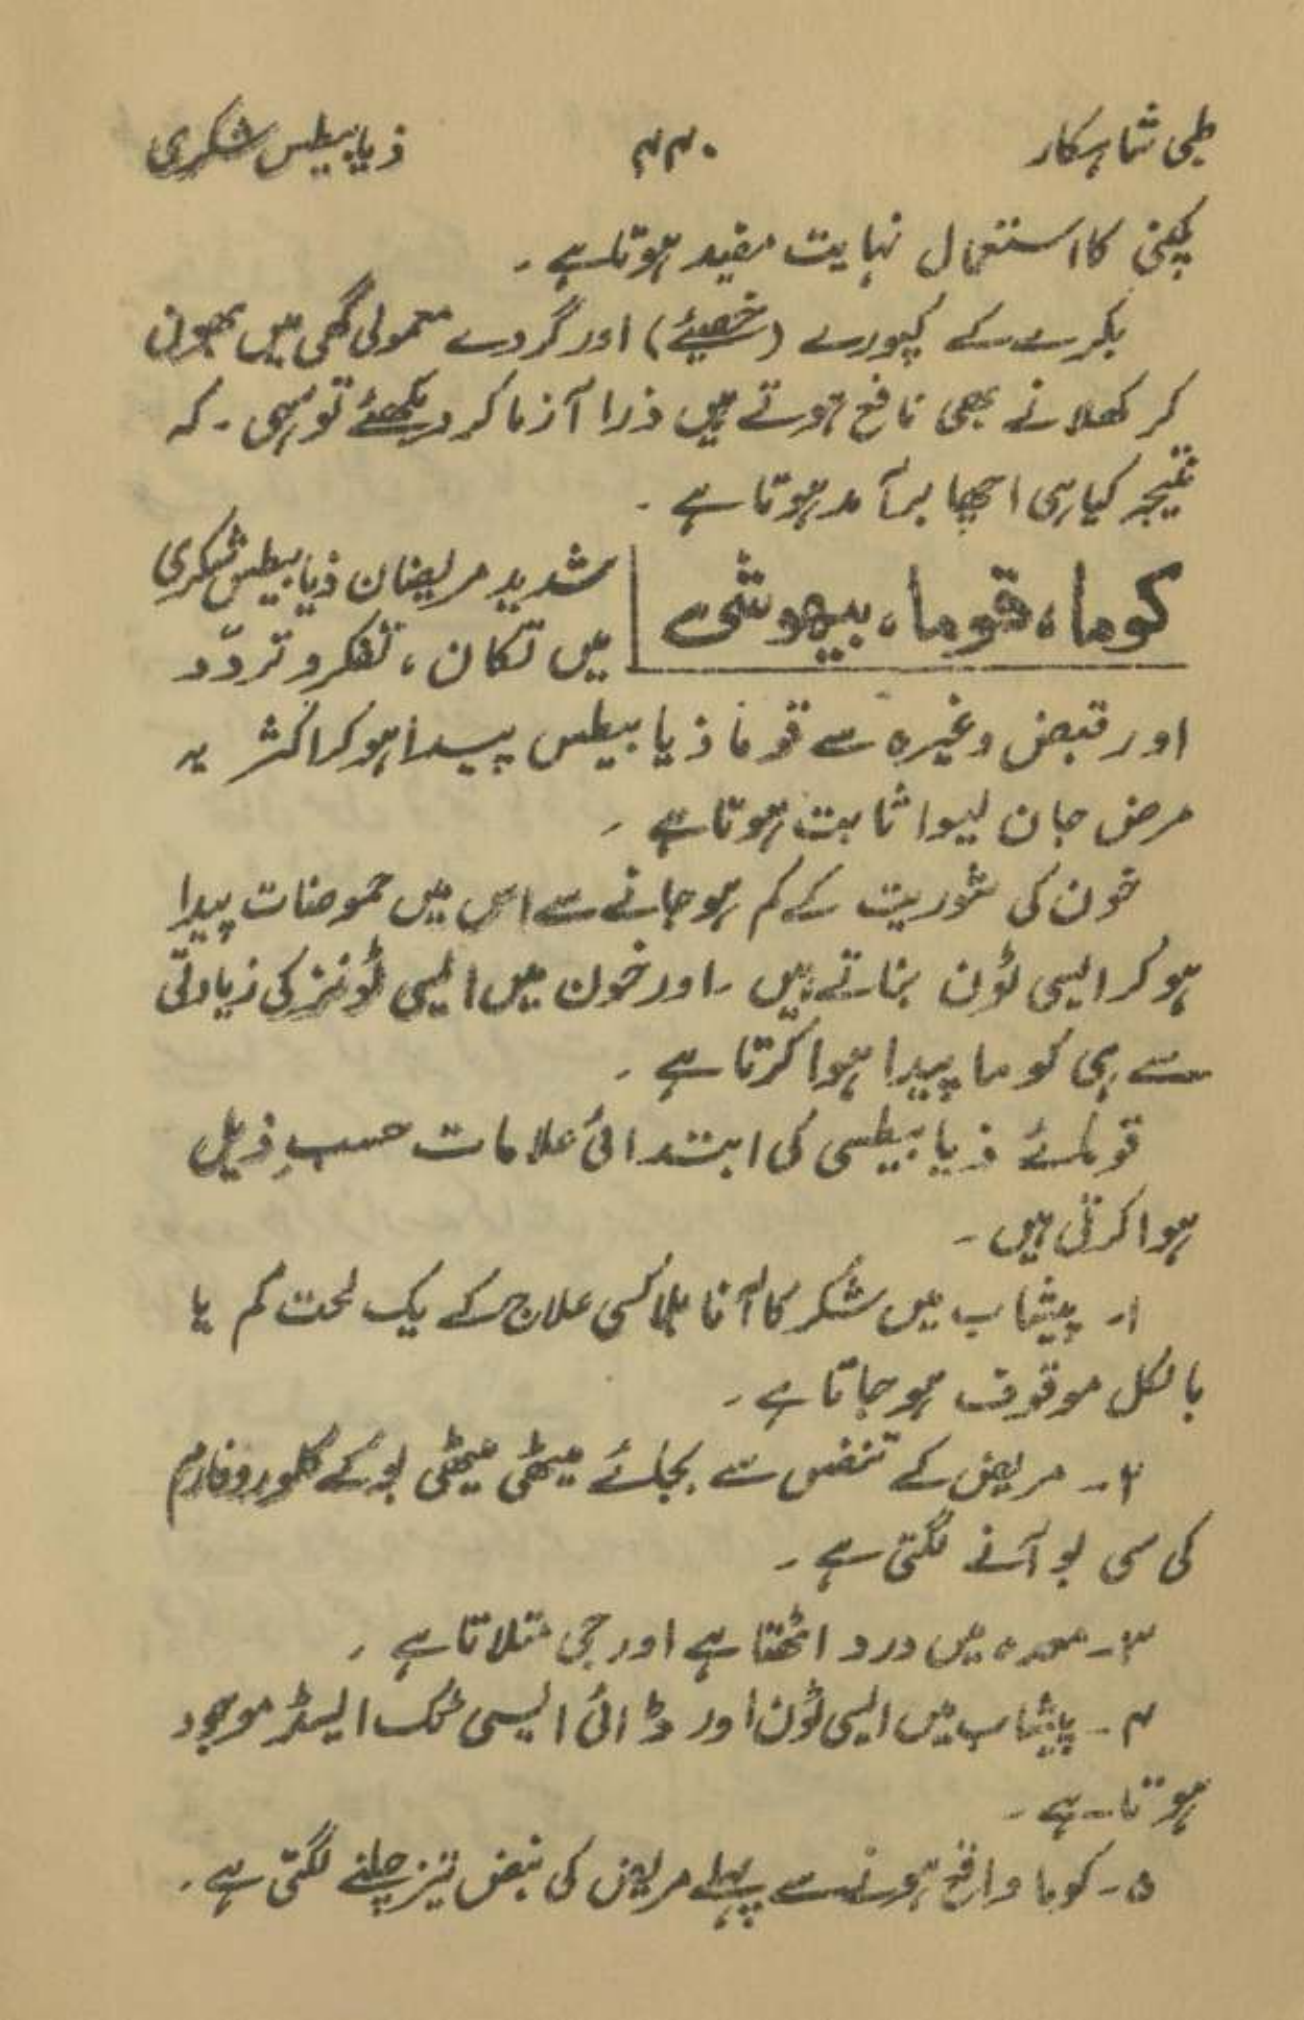 طبی شاہکار ۴۴۰ ذیابیطس شکری
یخنی کا استعمال نہایت مفید ہوتا ہے ۔
بکرے کے کپورے (خصیئے) اور گردے معمولی گھی میں بھون
کر کھلانے بھی نافع ہوتے ہیں ذرا آزما کر دیکھئے تو سہی ۔ کہ
نتیجہ کیا ہی اچھا برآمد ہوتا ہے ۔
کوما، قوما، بیہوشی
شدید مریضان ذیابیطس شکری
میں تکان ، تفکر و تردّد
اور قبض وغیرہ سے قوما ذیابیطس پیدا ہو کر اکثر یہ
مرض جان لیوا ثابت ہوتا ہے ۔
خون کی شوریت کے کم ہو جانے سے اس میں حموضات پیدا
ہو کر ایسی ٹون بناتے ہیں ۔ اور خون میں ایسی ٹونز کی زیادتی
سے ہی کوما پیدا ہوا کرتا ہے ۔
قومائے ذیابیطسی کی ابتدائی علامات حسبِ ذیل
ہوا کرتی ہیں ۔
۱۔ پیشاب میں شکر کا آنا بلا کسی علاج کے یک لخت کم یا
بالکل موقوف ہو جاتا ہے ۔
۲۔ مریض کے تنفس سے بجائے میٹھی میٹھی بو کے کلوروفارم
کی سی بو آنے لگتی ہے ۔
۳۔ معدہ میں درد اٹھتا ہے اور جی متلاتا ہے ۔
۴۔ پیشاب میں ایسی ٹون اور ڈائی ایسی ٹک ایسڈ موجود
ہوتا ہے ۔
۵۔ کوما واقع ہونے سے پہلے مریض کی نبض تیز چلنے لگتی ہے ۔